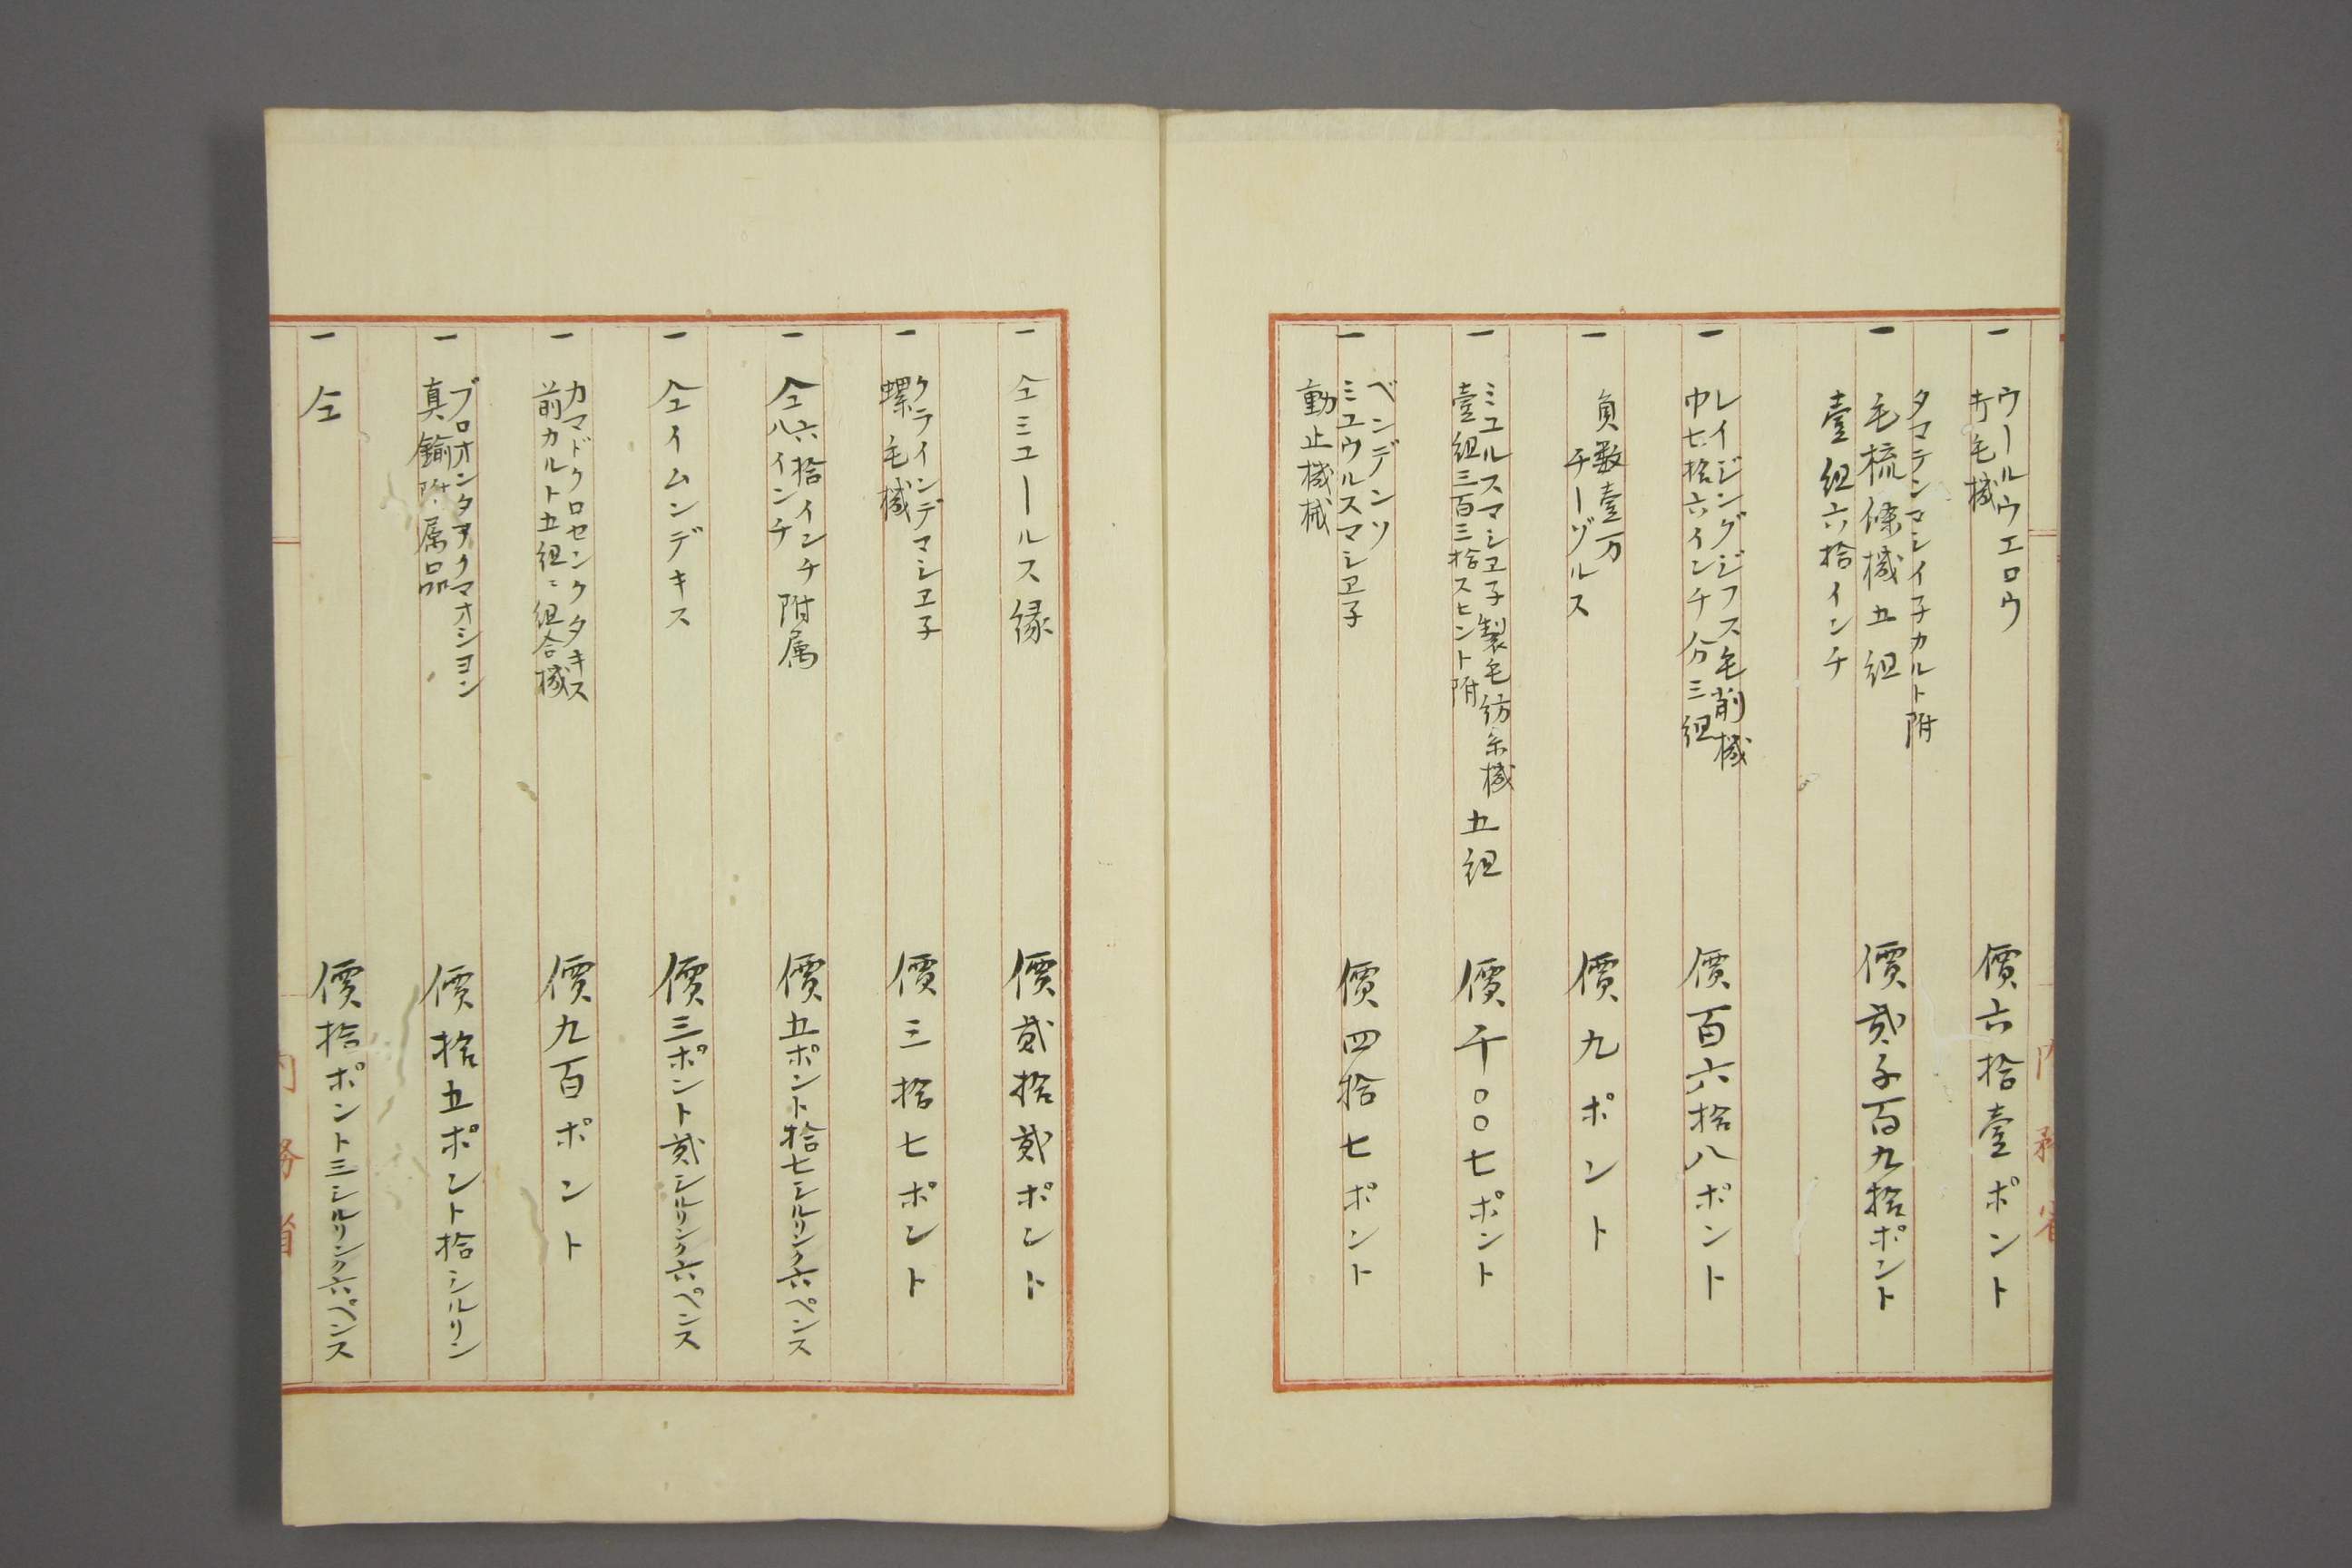 一 ウールウエロウ
打毛械 價六拾壹ポント
タマテンマシイ子カルト附
一 毛梳條械五組 價貳千百九拾ポント
壹組六拾インチ
一 レイジングジフス毛削械
巾七拾六インチ分三組 價百六拾八ポント
一 負数壹万
チーヅルス 價九ポント
一 ミユルスマシヱ子製毛紡糸械 五組
壹組三百三拾スヒント附 價千〇〇七ポント
ベンデンソ
一 ミユウルスマシヱ子 價四拾七ポント
動止機械
内務省
一 仝ミユールス縁 價貳拾貳ポント
一 クラインデマシヱ子
螺毛械 價三拾七ポント
一 仝六拾インチ附属
八インチ 價五ポント拾七シルリンク六ペンス
一 仝イムンデキス 價三ポント貳シルリンク六ペンス
一 カマドクロセンクタキス
前カルト五組ニ組合械 價九百ポント
一 ブロオンタアクマオシヨン
真鍮附属品 價拾五ポント拾シルリン
一 仝 價拾ポント三シルリンク六ペンス
内務省